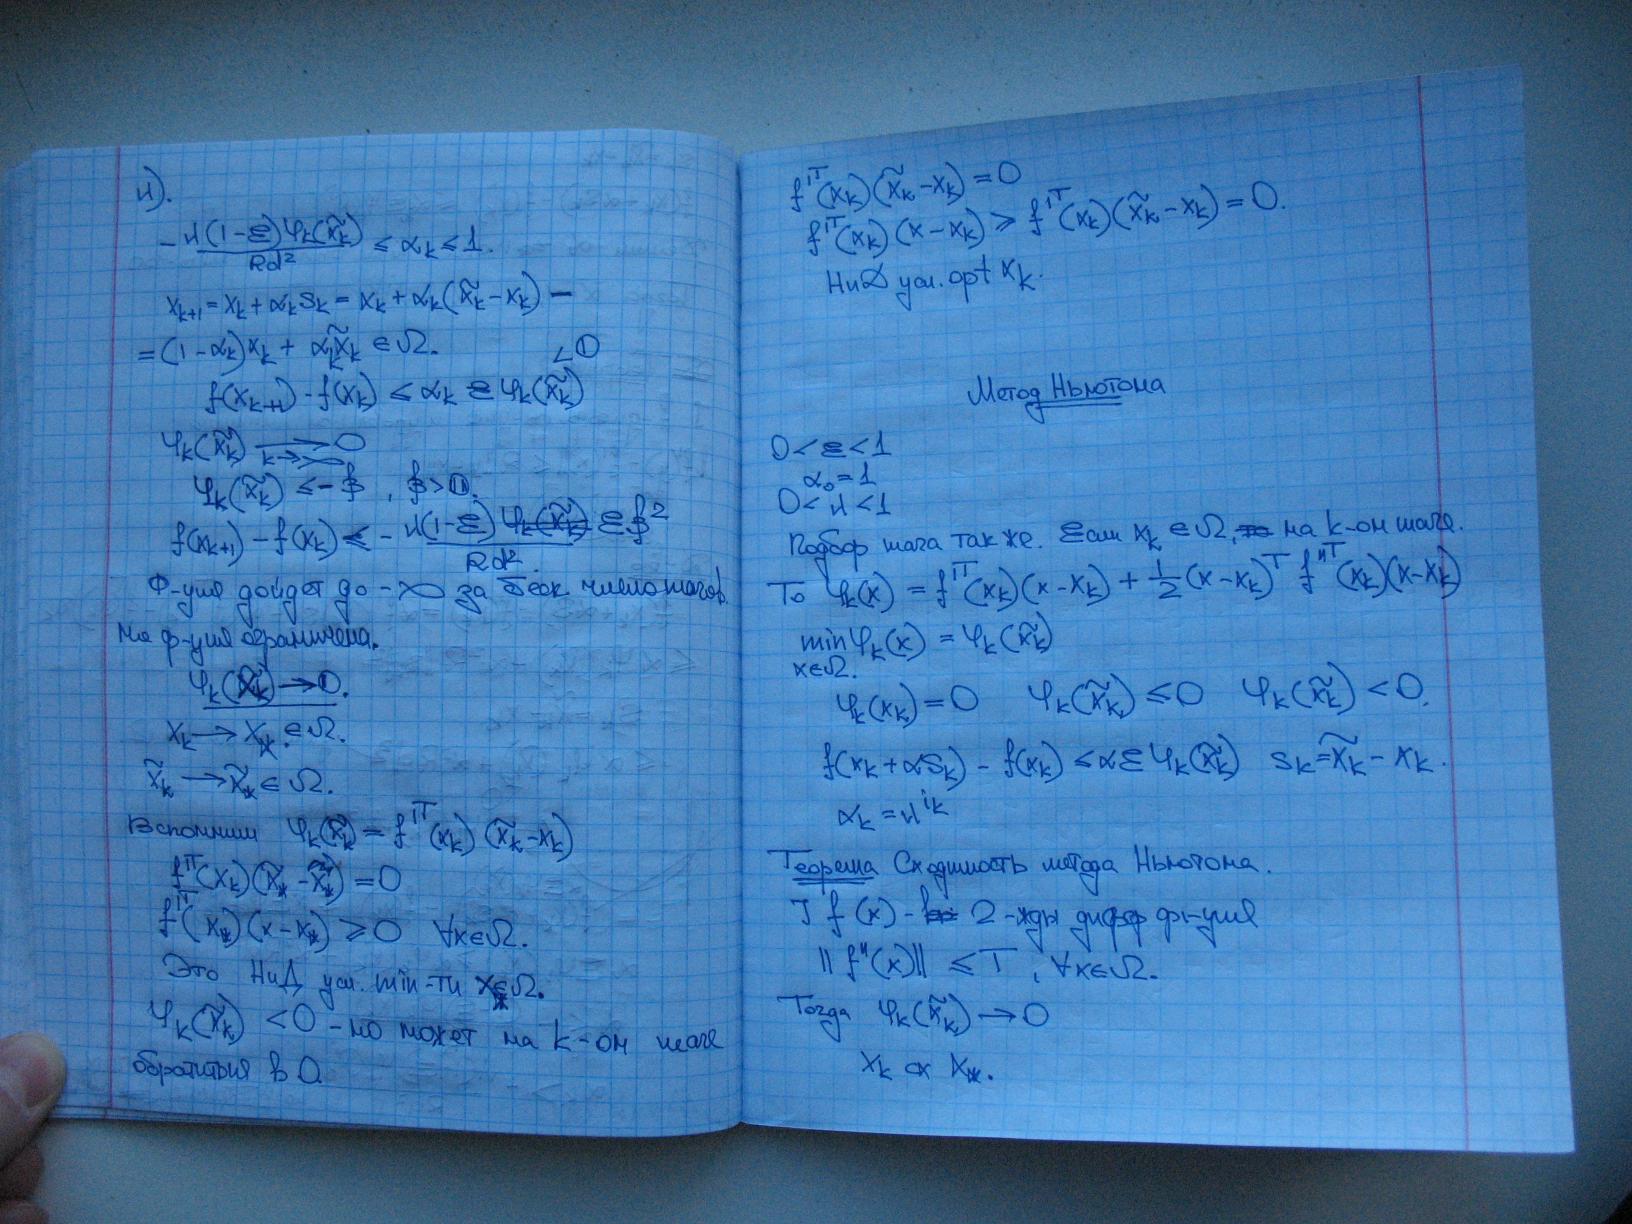 λ).
-λ(1-ε)φₖ(x̃ₖ)/Rd² ≤ αₖ ≤ 1.
xₖ₊₁ = xₖ + αₖsₖ = xₖ + αₖ(x̃ₖ - xₖ) =
= (1-αₖ)xₖ + αₖx̃ₖ ∈ Ω.
<0
f(xₖ₊₁) - f(xₖ) ≤ αₖ ε φₖ(x̃ₖ)
φₖ(x̃ₖ) → 0
k→∞
φₖ(x̃ₖ) ≤ -β, β>0.
f(xₖ₊₁) - f(xₖ) ≤ - λ(1-ε) εβ²/Rd².
Ф-ция дойдет до -∞ за беск. число шагов.
Но ф-ция ограничена.
φₖ(x̃ₖ) → 0.
xₖ → x* ∈ Ω.
x̃ₖ → x̃* ∈ Ω.
Вспомним φₖ(x̃ₖ) = f'ᵀ(xₖ)(x̃ₖ-xₖ)
f'ᵀ(xₖ)(x̃* - x̃*) = 0
f'ᵀ(x*)(x-x*) ≥ 0 ∀x∈Ω.
Это НиД усл. min-ти x*∈Ω.
φₖ(x̃ₖ) < 0 - но может на k-ом шаге
обратиться в 0.
f'ᵀ(xₖ)(x̃ₖ-xₖ) = 0
f'ᵀ(xₖ)(x-xₖ) ≥ f'ᵀ(xₖ)(x̃ₖ-xₖ) = 0.
НиД усл. opt xₖ.
Метод Ньютона
0<ε<1
α₀=1
0<λ<1
Подбор шага так же. Если xₖ ∈ Ω, на k-ом шаге.
То φₖ(x) = f'ᵀ(xₖ)(x-xₖ) + 1/2 (x-xₖ)ᵀ f''ᵀ(xₖ)(x-xₖ)
min φₖ(x) = φₖ(x̃ₖ)
x∈Ω.
φₖ(xₖ)=0 φₖ(x̃ₖ) ≤ 0 φₖ(x̃ₖ) < 0.
f(xₖ+αsₖ) - f(xₖ) ≤ αεφₖ(x̃ₖ) sₖ=x̃ₖ - xₖ.
αₖ = λ^iₖ
Теорема Сходимость метода Ньютона.
] f(x) - 2-жды дифф ф-ция
||f''(x)|| ≤ T, ∀x∈Ω.
Тогда φₖ(x̃ₖ) → 0